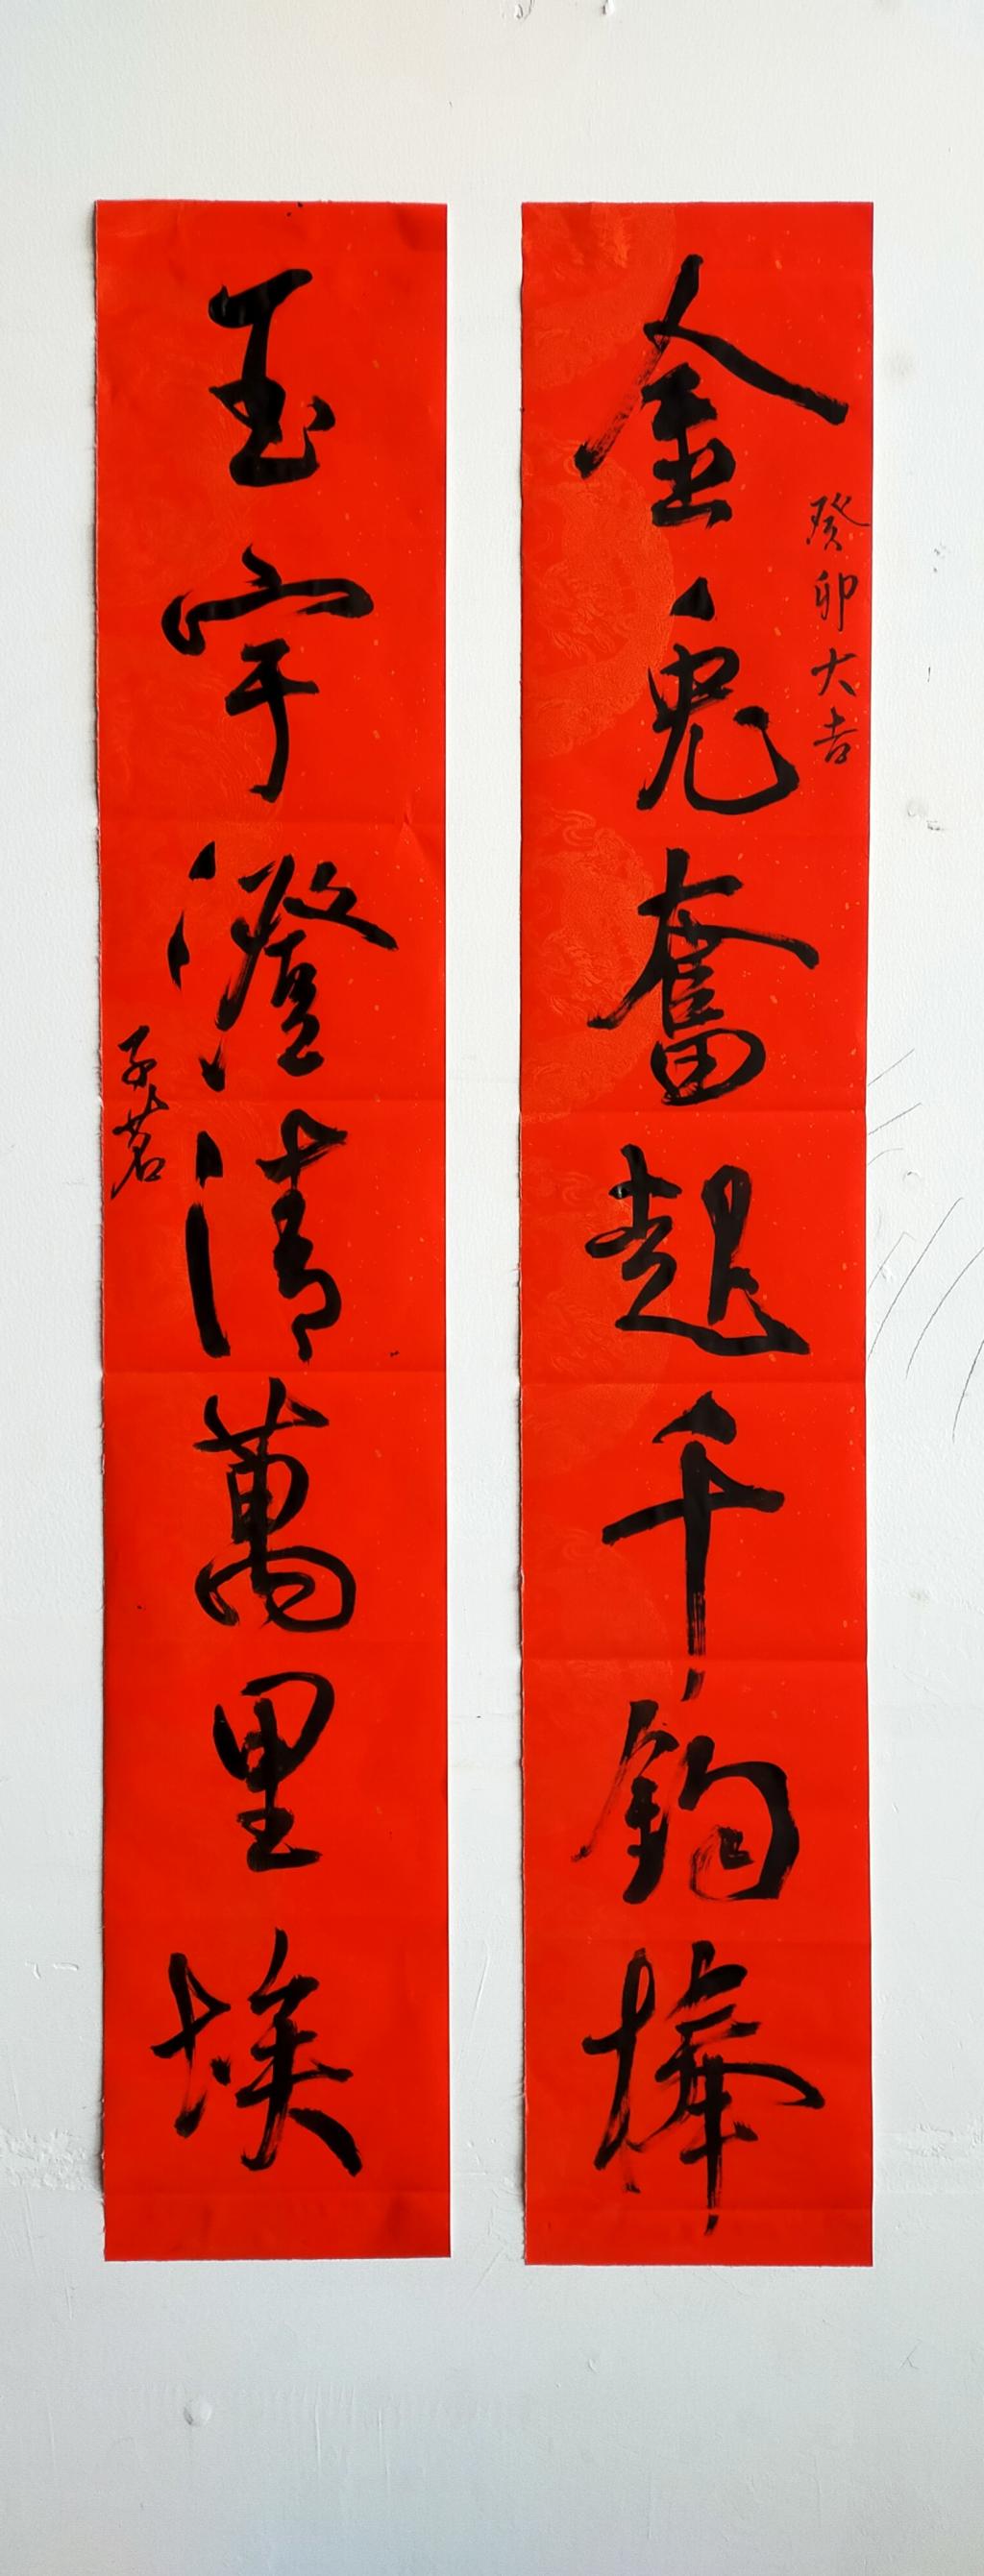 金兔奮起千鈞棒
癸卯大吉
玉宇澄清萬里埃
子茗